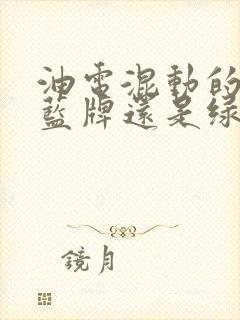 油電混動的
藍牌還是綠
鏡月